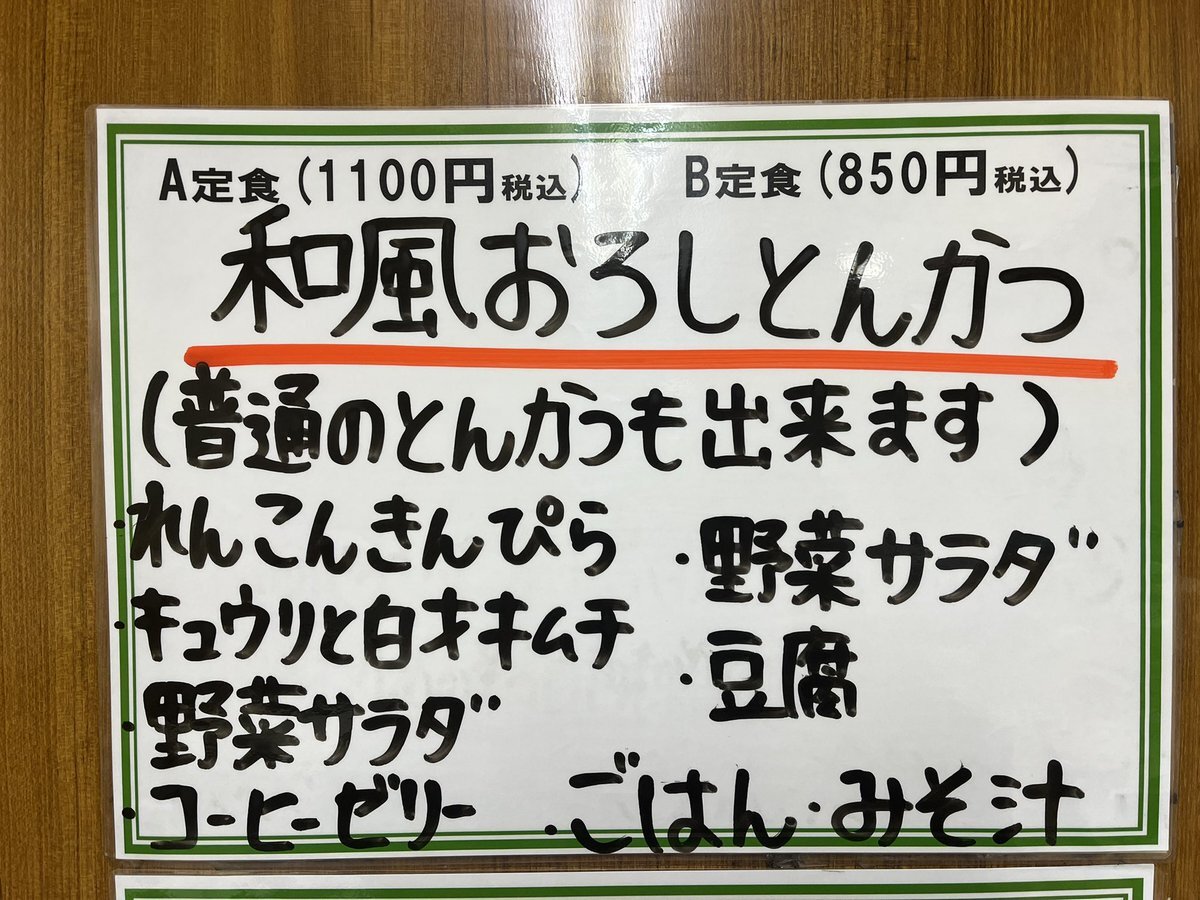 A定食(1100円税込) B定食(850円税込)
和風おろしとんかつ
(普通のとんかつも出来ます)
・れんこんきんぴら
・キュウリと白才キムチ
・野菜サラダ
・コーヒーゼリー
・野菜サラダ
・豆腐
・ごはん・みそ汁